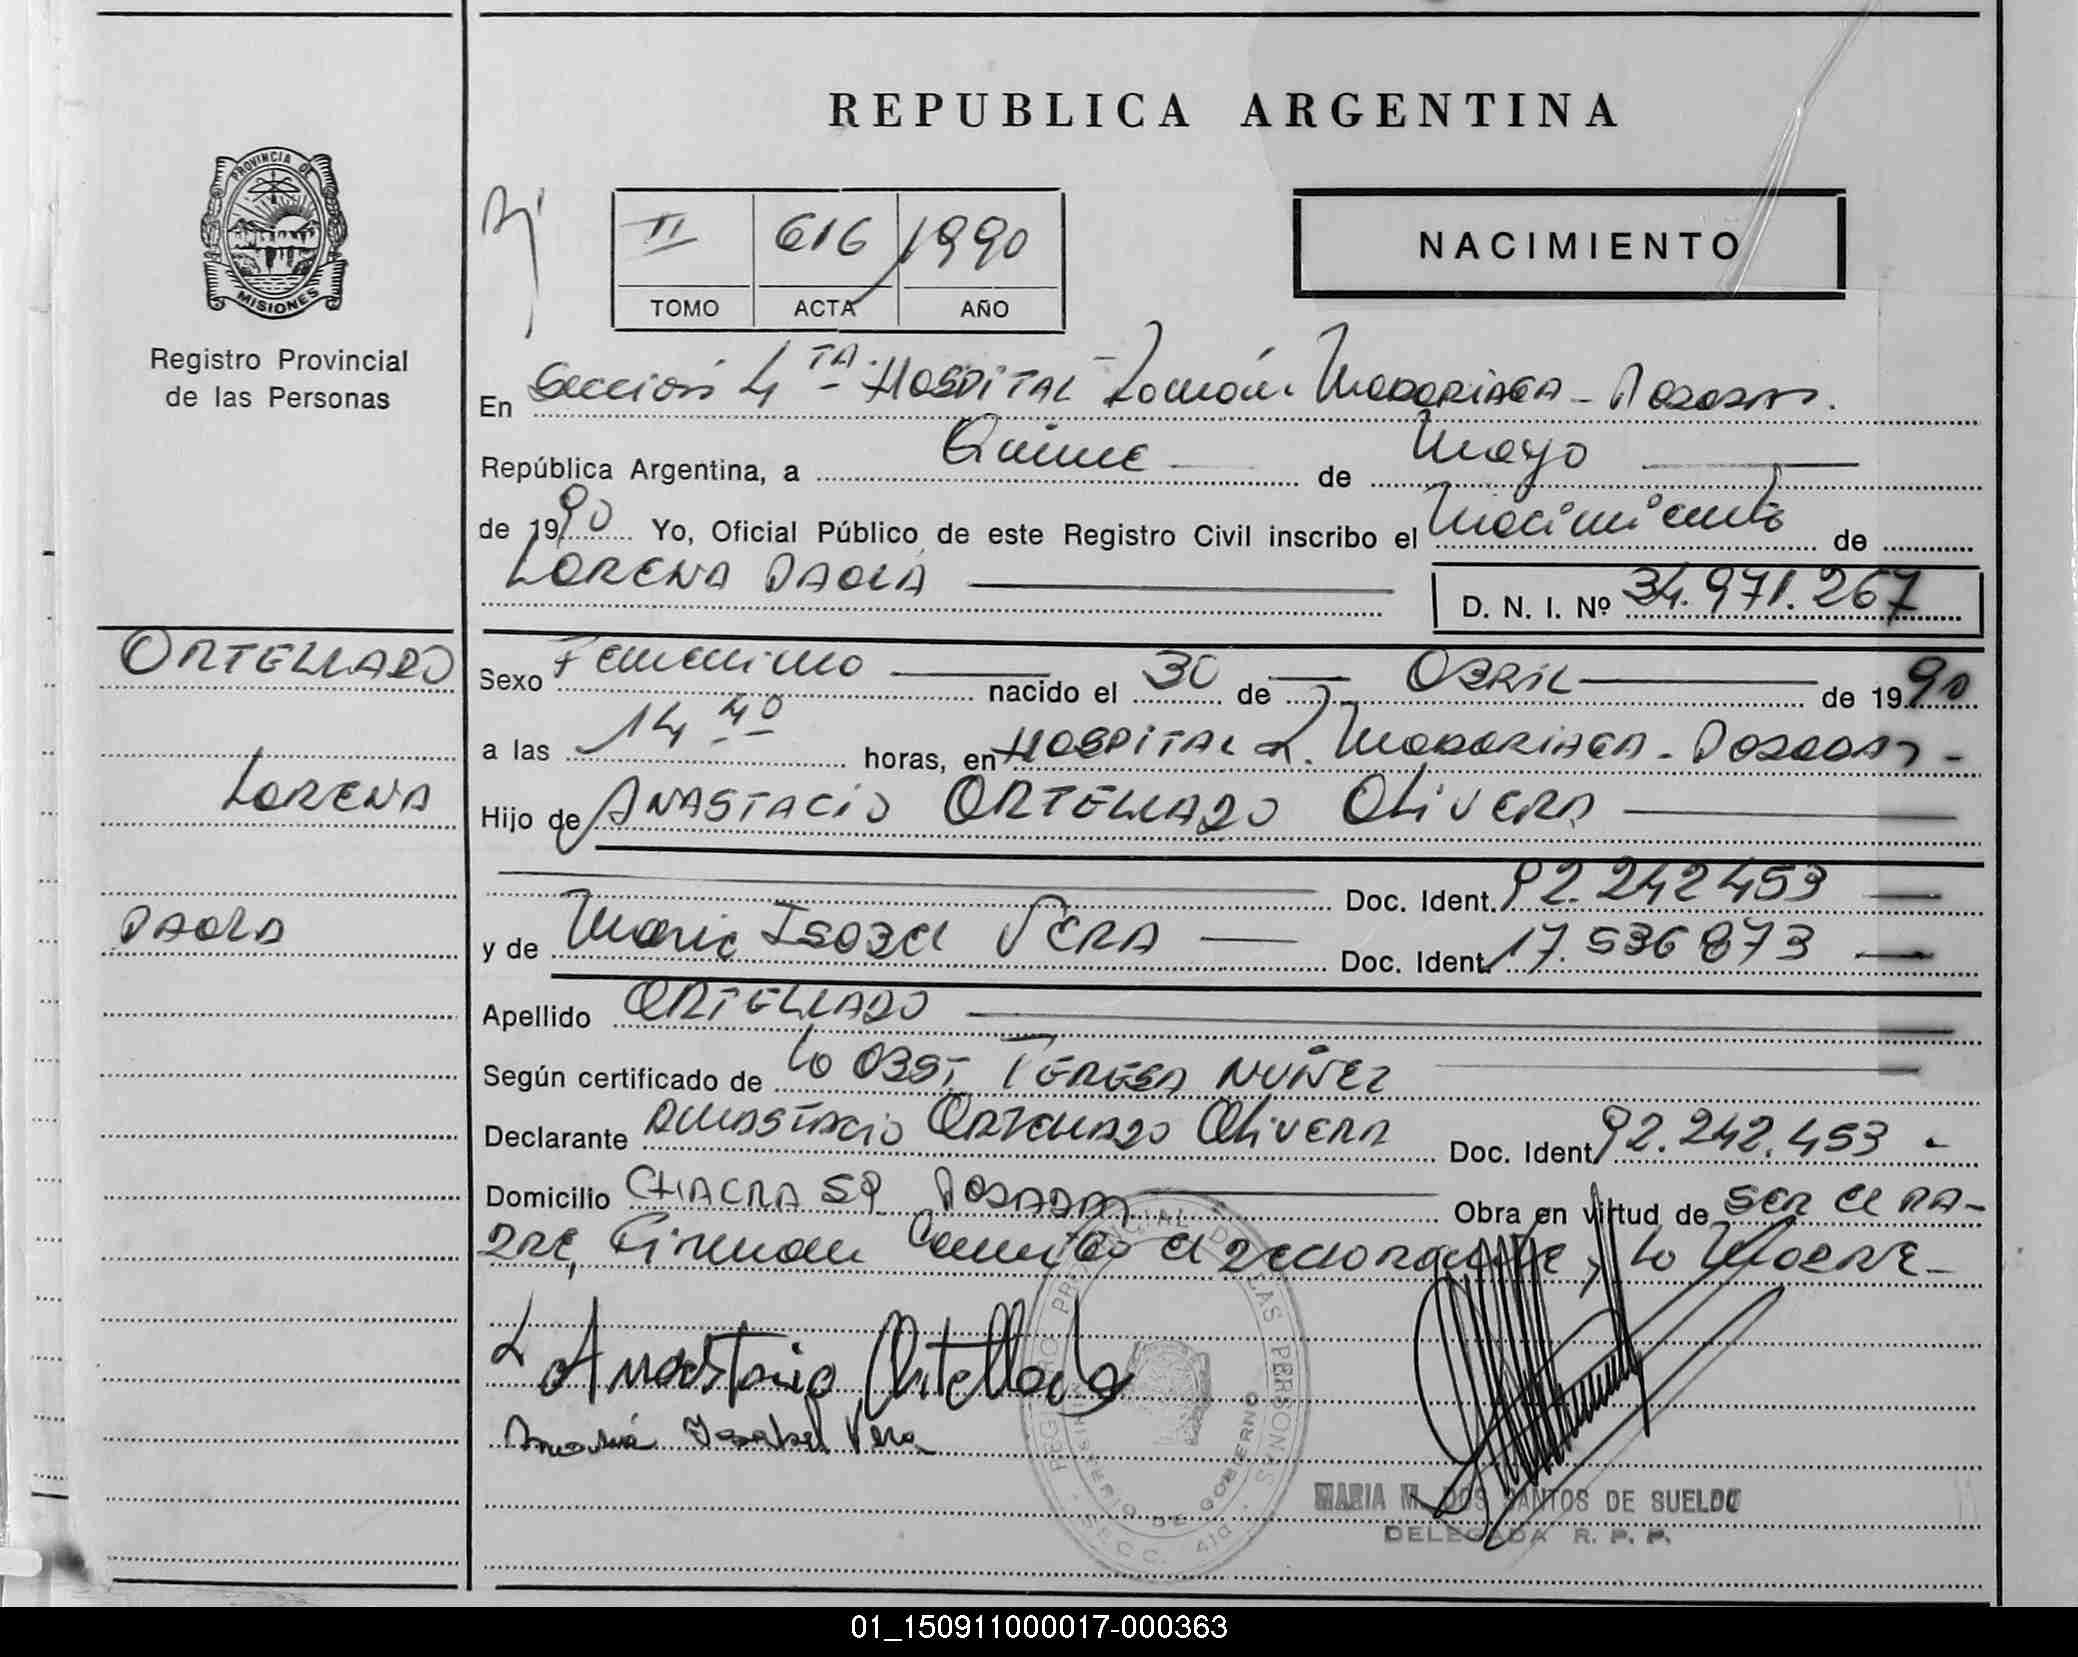 REPUBLICA ARGENTINA
PROVINCIA DE
MISIONES
Registro Provincial
de las Personas
II 616 1990
TOMO ACTA AÑO
NACIMIENTO
En Sección 4TA. HOSPITAL Ramón MADARIAGA - POSADAS.
República Argentina, a Quince de Mayo
de 1990 Yo, Oficial Público de este Registro Civil inscribo el Nacimiento de
LORENA PAOLA
D. N. I. Nº 34.971.267
ORTELLADO
LORENA
PAOLA
Sexo Femenino nacido el 30 de ABRIL de 1990
a las 14 40 horas, en HOSPITAL R. MADARIAGA - POSADAS -
Hijo de ANASTACIO ORTELLADO OLIVERA
Doc. Ident. 92.242 453
y de Maria ISABEL VERA Doc. Ident. 17.536 873
Apellido ORTELLADO
Según certificado de la OBST. TERESA NUÑEZ
Declarante ANASTACIO ORTELLADO OLIVERA Doc. Ident. 92.242.453 -
Domicilio CHACRA 59 POSADAS Obra en virtud de SER EL PA-
DRE, Firman el DECLARANTE y la MADRE -
Anastacio Ortellado
Maria Isabel Vera
REGISTRO PROVINCIAL DE LAS PERSONAS
MINISTERIO DE GOBIERNO
SECC. 4ta.
MARIA M. DOS SANTOS DE SUELDO
DELEGADA R. P. P.
01_150911000017-000363